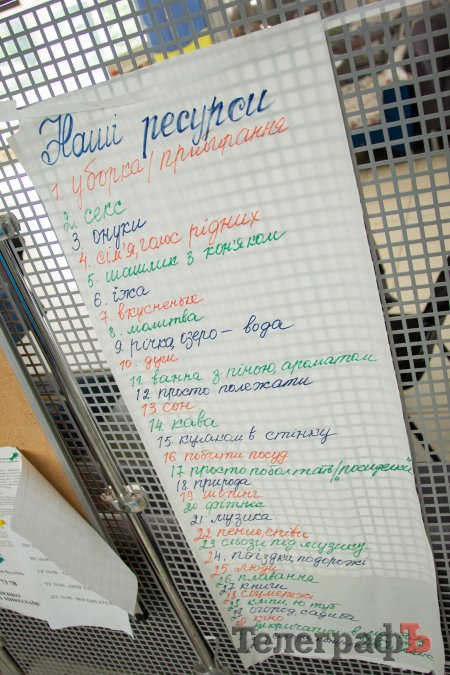 Наші ресурси
1. уборка/прибирання
2. секс
3. онуки
4. сім'я, голос рідних
5. шашлик з кон'яком
6. їжа
7. вкусненьке
8. молитва
9. річка, озеро – вода
10. душ
11. ванна з піною, ароматом
12. просто полежати
13. сон
14. кава
15. кулаком в стінку
16. побити посуд
17. просто поболтать/"посиденьки"
18. природа
19. шопінг
20. фітнес
21. музика
22. пение, співи
23. сльози під музику
24. поїздки, подорожі
25. люди
26. плавання
27. книги
28. соцмережі
29. огород, садити
30 кіно
ТелеграфЪ